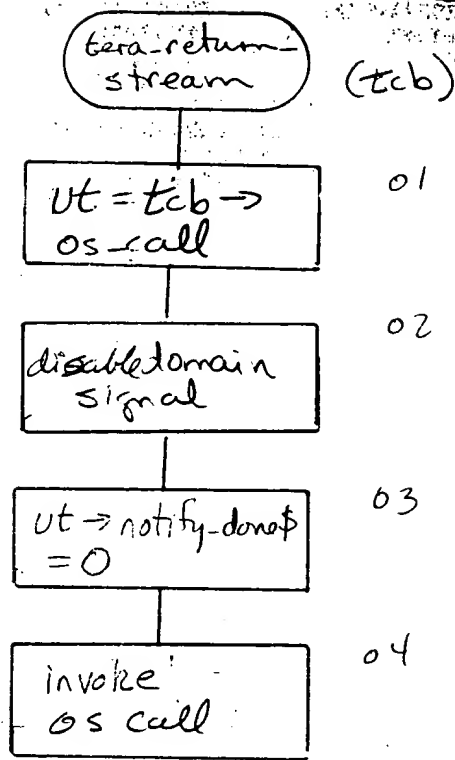 tera-return-
stream
(tcb)
ut = tcb →
os-call
01
disable domain
signal
02
ut → notify-done$
= 0
03
invoke
os call
04